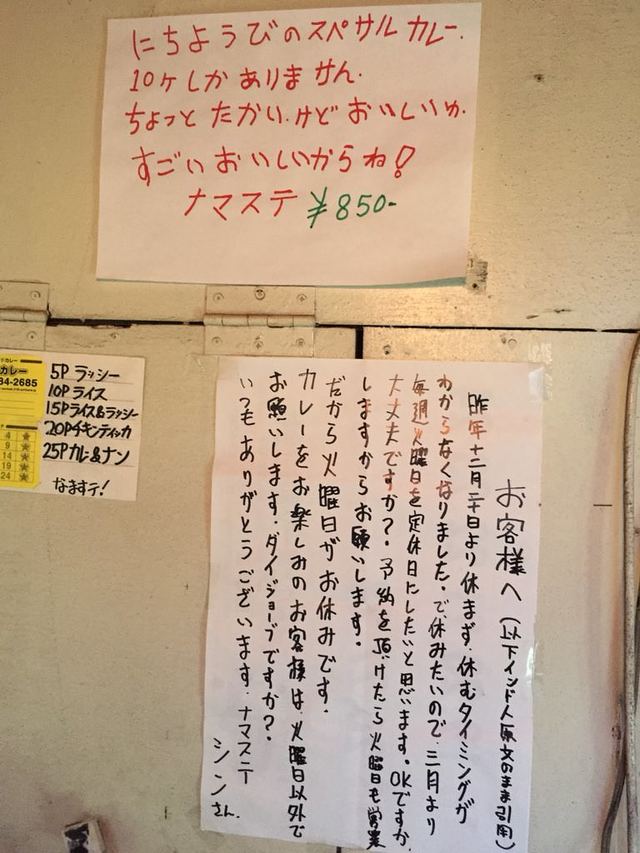 にちようびのスペサルカレー.
10ケしかありません.
ちょっとたかい.けどおいしいゅ.
すごいおいしいからね!
ナマステ ¥850-
カレー
34-2685
4
9
14
19
24
5P ラッシー
10P ライス
15Pライス&ラッシー
20Pチキンティッカ
25Pカレ&ナン
なますテ!
お客様へ(以下インド人原文のまま引用)
昨年十二月二十日より休まず.休むタイミングが
わからなくなりました.で休みたいので.三月より
毎週火曜日を定休日にしたいと思います.OKですか.
大丈夫ですか?.予約を頂けたら火曜日も営業
しますからお願いします.
だから火曜日がお休みです.
カレーをお楽しみのお客様は.火曜日以外で
お願いします.ダイジョーブですか?
いつもありがとうございます.ナマステ
シンさん.